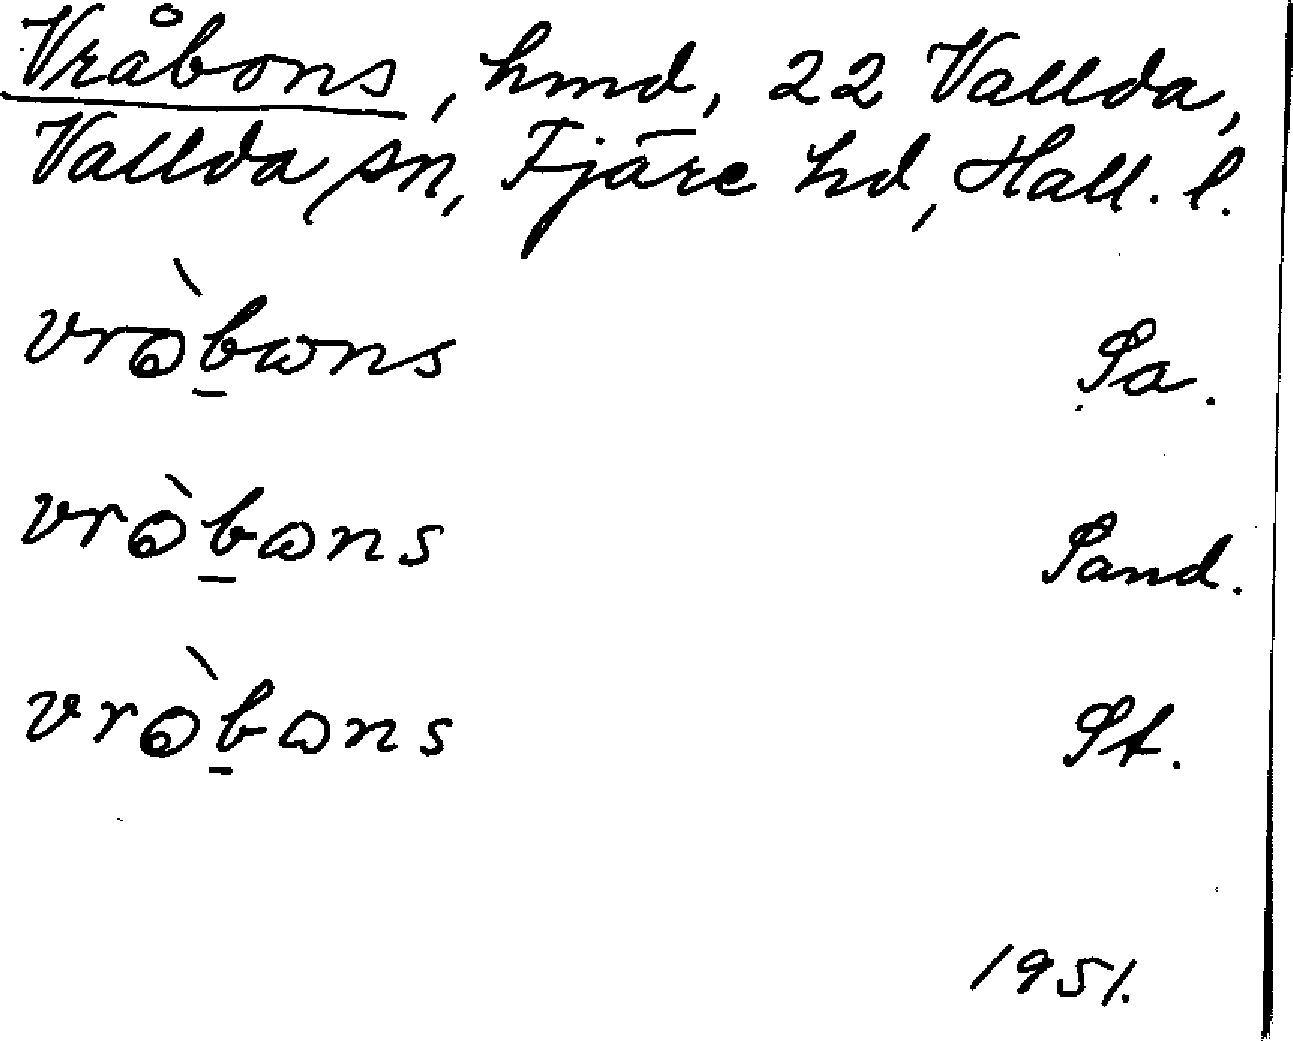 Vråbons, hmd, 22 Vallda,
Vallda sn, Fjäre hd, Hall. l.
vrò̀b̲ωns Sa.
vrò̀b̲ωns Sand.
vrò̀b̲ωns St.
1951.